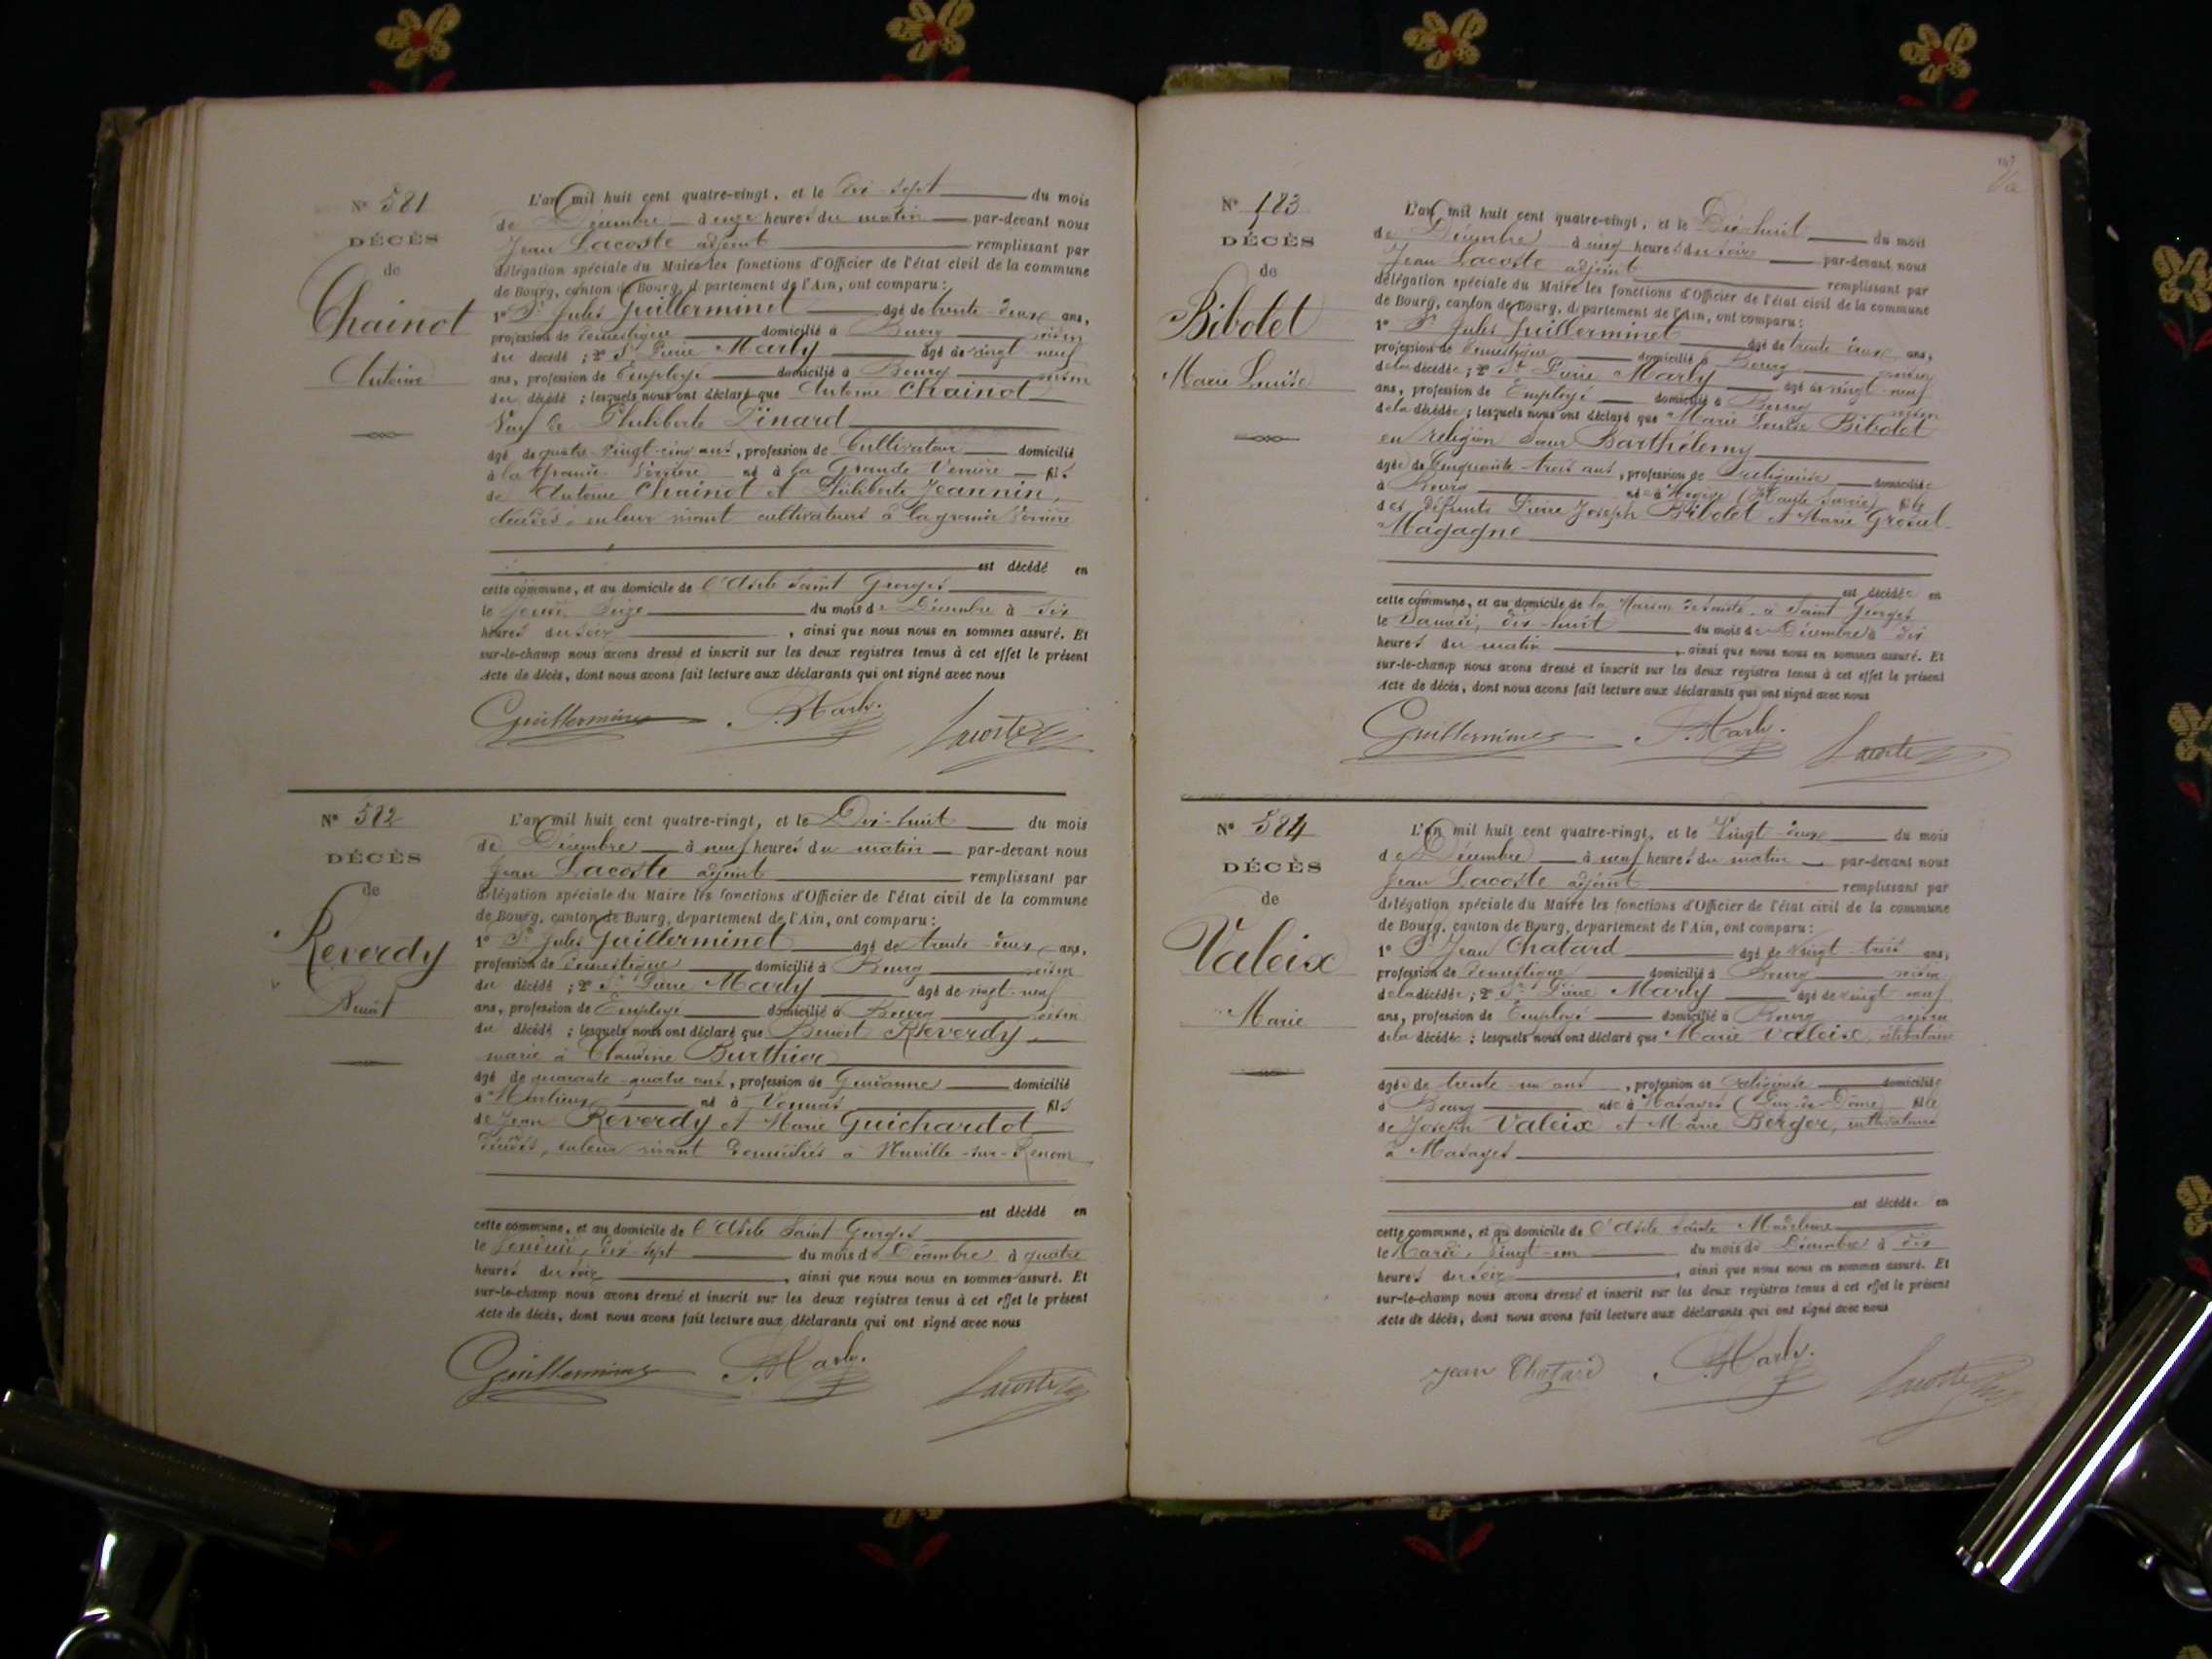 N° 581
DÉCÈS
de
Chainot
Antoine
L'an mil huit cent quatre-vingt, et le Dix-sept du mois
de Décembre à onze heures du matin par-devant nous
Jean Lacoste adjoint remplissant par
délégation spéciale du Maire les fonctions d'Officier de l'état civil de la commune
de Bourg, canton de Bourg, département de l'Ain, ont comparu :
1° Sr Jules Guillerminet âgé de trente-deux ans,
profession de domestique domicilié à Bourg voisin
du décédé ; 2° Sr Pierre Marly âgé de vingt-neuf
ans, profession de Employé domicilié à Bourg voisin
du décédé ; lesquels nous ont déclaré que Antoine Chainot
Veuf de Philiberte Pinard
âgé de quatre-vingt-cinq ans, profession de Cultivateur domicilié
à la Grande Verrière né à la Grande Verrière fils
de Antoine Chainot et Philiberte Jeannin,
décédés, en leur vivant cultivateurs à la grande Verrière
est décédé en
cette commune, et au domicile de l'Asile Saint Georges
le Jeudi, Seize du mois de Décembre à dix
heures du soir, ainsi que nous nous en sommes assuré. Et
sur-le-champ nous avons dressé et inscrit sur les deux registres tenus à cet effet le présent
Acte de décès, dont nous avons fait lecture aux déclarants qui ont signé avec nous
Guillerminet P. Marly. Lacoste
N° 582
DÉCÈS
de
Reverdy
Benoit
L'an mil huit cent quatre-vingt, et le Dix-huit du mois
de Décembre à neuf heures du matin par-devant nous
Jean Lacoste adjoint remplissant par
délégation spéciale du Maire les fonctions d'Officier de l'état civil de la commune
de Bourg, canton de Bourg, département de l'Ain, ont comparu :
1° Sr Jules Guillerminet âgé de trente-deux ans,
profession de domestique domicilié à Bourg voisin
du décédé ; 2° Sr Pierre Marly âgé de vingt-neuf
ans, profession de Employé domicilié à Bourg voisin
du décédé ; lesquels nous ont déclaré que Benoit Reverdy
marié à Claudine Burthier
âgé de quarante-quatre ans, profession de domicilié
à Marlieux né à Vonnas fils
de Jean Reverdy et Marie Guichardot
décédés, en leur vivant domiciliés à Neuville-sur-Renom
est décédé en
cette commune, et au domicile de l'Asile Saint Georges
le Vendredi, dix sept du mois de Décembre à quatre
heures du soir, ainsi que nous nous en sommes assuré. Et
sur-le-champ nous avons dressé et inscrit sur les deux registres tenus à cet effet le présent
Acte de décès, dont nous avons fait lecture aux déclarants qui ont signé avec nous
Guillerminet P. Marly. Lacoste
N° 583
DÉCÈS
de
Bibolet
Marie Louise
L'an mil huit cent quatre-vingt, et le Dix-huit du mois
de Décembre à cinq heures du soir par-devant nous
Jean Lacoste adjoint remplissant par
délégation spéciale du Maire les fonctions d'Officier de l'état civil de la commune
de Bourg, canton de Bourg, département de l'Ain, ont comparu :
1° Sr Jules Guillerminet âgé de trente deux ans,
profession de domestique domicilié à Bourg voisin
de la décédée ; 2° Sr Pierre Marly âgé de vingt-neuf
ans, profession de Employé domicilié à Bourg voisin
de la décédée ; lesquels nous ont déclaré que Marie Louise Bibolet
en religion Sœur Barthélemy
âgée de Cinquante-trois ans, profession de religieuse domiciliée
à Bourg née à Megève (Haute Savoie) fille
des défunts Pierre Joseph Bibolet et Marie Grosset-
Magagne
est décédée en
cette commune, et au domicile de la Maison de santé, à Saint Georges
le Samedi, dix-huit du mois de Décembre à dix
heures du matin, ainsi que nous nous en sommes assuré. Et
sur-le-champ nous avons dressé et inscrit sur les deux registres tenus à cet effet le présent
Acte de décès, dont nous avons fait lecture aux déclarants qui ont signé avec nous
Guillerminet P. Marly. Lacoste
N° 584
DÉCÈS
de
Valeix
Marie
L'an mil huit cent quatre-vingt, et le Vingt-deux du mois
de Décembre à neuf heures du matin par-devant nous
Jean Lacoste adjoint remplissant par
délégation spéciale du Maire les fonctions d'Officier de l'état civil de la commune
de Bourg, canton de Bourg, département de l'Ain, ont comparu :
1° Sr Jean Chatard âgé de Vingt-trois ans,
profession de domestique domicilié à Bourg voisin
de la décédée ; 2° Sr Pierre Marly âgé de vingt-neuf
ans, profession de Employé domicilié à Bourg voisin
de la décédée ; lesquels nous ont déclaré que Marie Valeix, célibataire
âgée de trente-un ans, profession de religieuse domiciliée
à Bourg née à Mazayes (Puy-de-Dôme) fille
de Joseph Valeix et Marie Berger, cultivateurs
à Mazayes
est décédée en
cette commune, et au domicile de l'Asile Sainte Madeleine
le Mardi, Vingt-un du mois de Décembre à dix
heures du soir, ainsi que nous nous en sommes assuré. Et
sur-le-champ nous avons dressé et inscrit sur les deux registres tenus à cet effet le présent
Acte de décès, dont nous avons fait lecture aux déclarants qui ont signé avec nous
Jean Chatard P. Marly. Lacoste